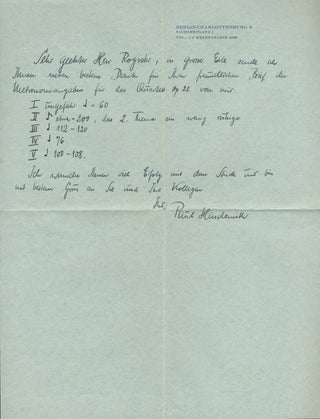 BERLIN-CHARLOTTENBURG 9
SACHSENPLATZ 1
TEL.: J 9 HEERSTRASSE
Sehr geehrter Herr, in grosser Eile sende ich
Ihnen meinen besten Dank für Ihren freundlichen Brief die
Metronomangaben für das op 22 von mir.
I ungefähr ♩ = 60
II ♪ etwa 200, das 2. Thema ein wenig ruhiger
III ♩ 112 - 120
IV ♩ 76
V ♩ 100 - 108.
Ich wünsche Ihnen viel Erfolg mit dem Stück und bin
mit bestem Gruss an Sie und Ihre Kollegen
Ihr Paul Hindemith